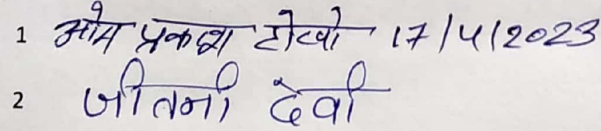 1 ओम प्रकाश टोप्पो 17/4/2023
2 जीतनी देवी